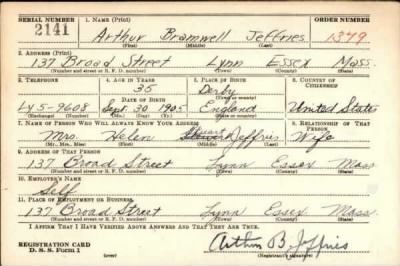 SERIAL NUMBER 1. NAME (Print) ORDER NUMBER
2141 Arthur Bramwell Jeffries 1379
(First) (Middle) (Last)
2. ADDRESS (Print)
137 Broad Street Lynn Essex Mass.
(Number and street or R. F. D. number) (Town) (County) (State)
3. TELEPHONE 4. AGE IN YEARS 5. PLACE OF BIRTH 6. COUNTRY OF CITIZENSHIP
35 Derby
LY 5-9608 DATE OF BIRTH (Town or county)
Sept. 30, 1905 England United States
(Exchange) (Number) (Mo.) (Day) (Yr.) (State or country)
7. NAME OF PERSON WHO WILL ALWAYS KNOW YOUR ADDRESS 8. RELATIONSHIP OF THAT PERSON
Mrs. Helen Stuart Jeffries Wife
(Mr., Mrs., Miss) (First) (Middle) (Last)
9. ADDRESS OF THAT PERSON
137 Broad Street Lynn Essex Mass
(Number and street or R. F. D. number) (Town) (County) (State)
10. EMPLOYER'S NAME
Self
11. PLACE OF EMPLOYMENT OR BUSINESS
137 Broad Street Lynn Essex Mass.
(Number and street or R. F. D. number) (Town) (County) (State)
I AFFIRM THAT I HAVE VERIFIED ABOVE ANSWERS AND THAT THEY ARE TRUE.
REGISTRATION CARD
D. S. S. Form 1 (over) Arthur B. Jeffries
(Registrant's signature)